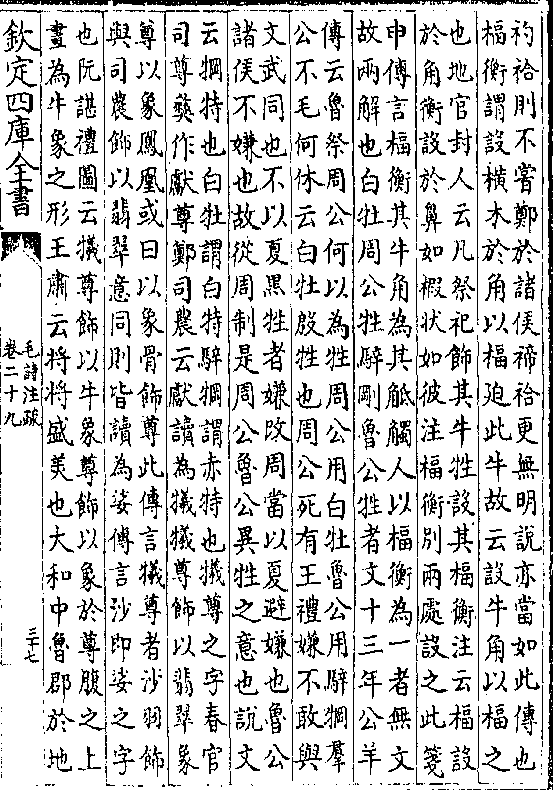 礿祫則不嘗鄭於諸侯禘祫更無明說亦當如此傳也
楅衡謂設橫木於角以楅迫此牛故云設牛角以楅之
也地官封人云凡祭祀飾其牛牲設其楅衡注云楅設
於角衡設於鼻如椵狀如彼注楅衡別兩處設之此箋
申傳言楅衡其牛角為其觝觸人以楅衡為一者無文
故兩解也白牡周公牲騂剛魯公牲者文十三年公羊
傳云魯祭周公何以為牲周公用白牡魯公用騂犅羣
公不毛何休云白牡殷牲也周公死有王禮嫌不敢與
文武同也不以夏黑牲者嫌改周當以夏避嫌也魯公
諸侯不嫌也故從周制是周公魯公異牲之意也說文
云犅特也白牡謂白特騂犅謂赤特也犧尊之字春官
司尊彝作獻尊鄭司農云獻讀為犧犧尊飾以翡翠象
尊以象鳳凰或曰以象骨飾尊此傳言犧尊者沙羽飾
與司農飾以翡翠意同則皆讀為娑傳言沙即娑之字
也阮諶禮圖云犧尊飾以牛象尊飾以象於尊腹之上
畫為牛象之形王肅云將將盛美也大和中魯郡於地
欽定四庫全書
毛詩注疏
卷二十九
三十七